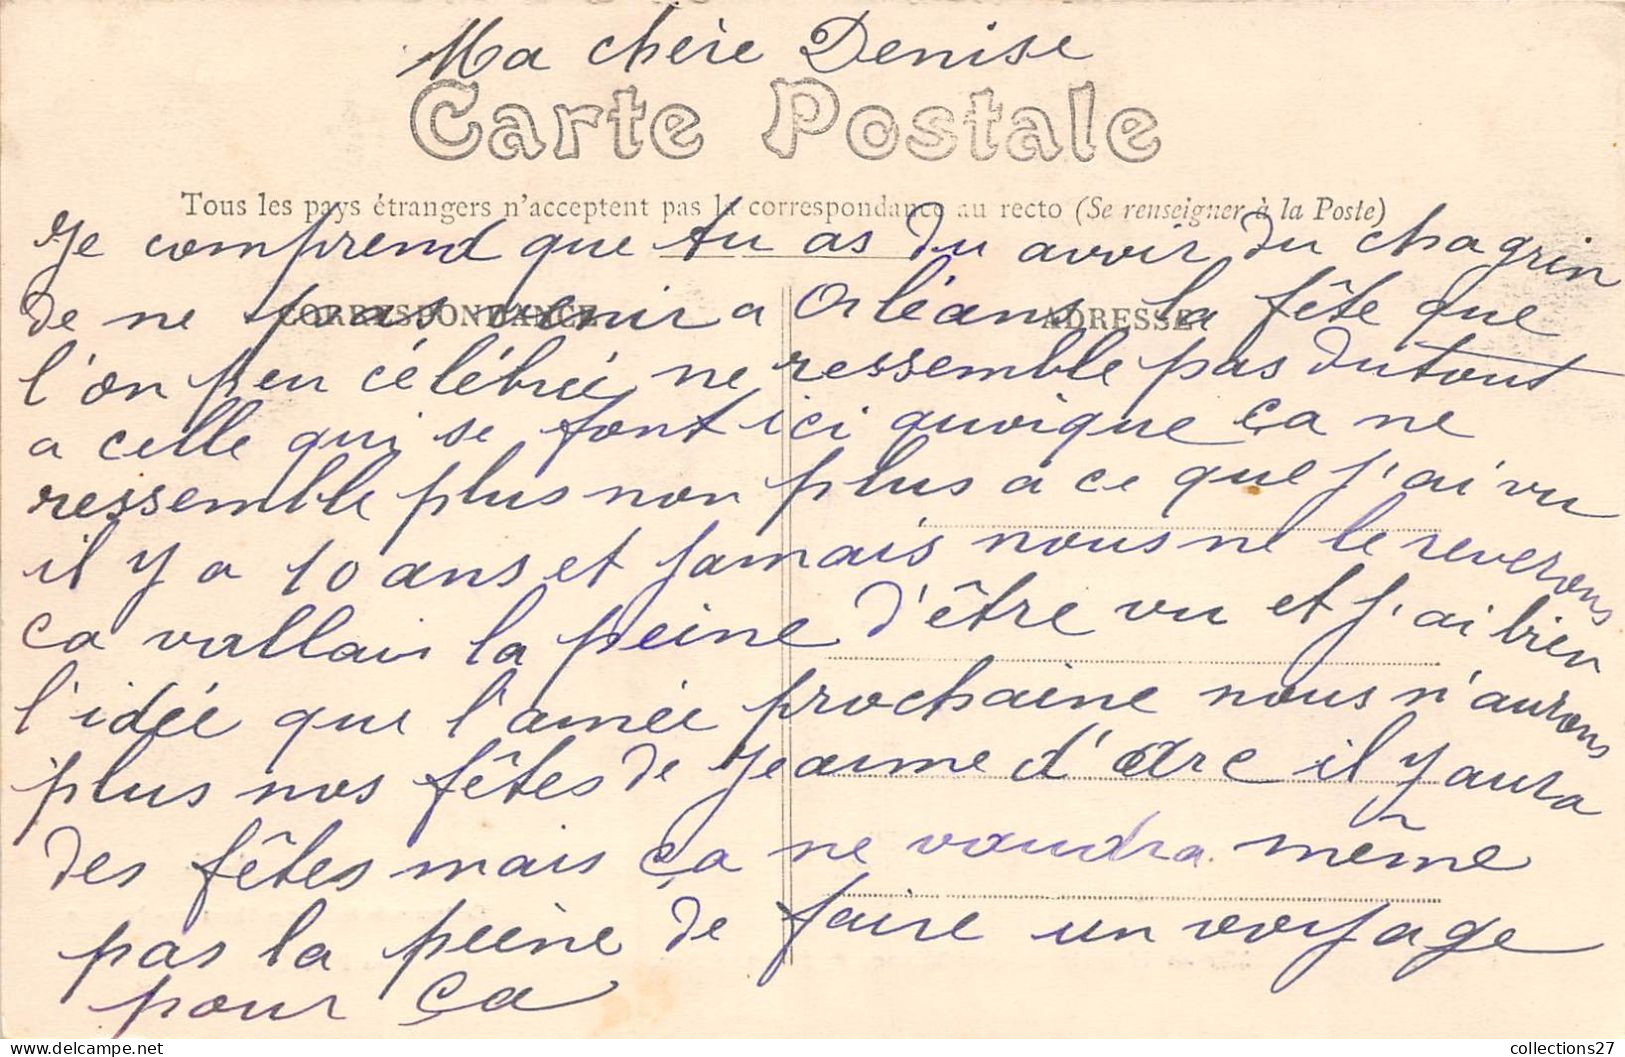 Ma chère Denise
Carte Postale
Tous les pays étrangers n'acceptent pas la correspondance au recto (Se renseigner à la Poste)
Je comprend que tu as du avoir du chagrin
CORRESPONDANCE
ADRESSE
de ne pas venir a Orléans la fête que
l'on peu célébrée ne ressemble pas dutout
a celle qui se font ici quoique ça ne
ressemble plus non plus a ce que j'ai vu
il y a 10 ans et jamais nous ne le reverons
ca vallais la peine d'être vu et j'ai bien
l'idée que l'année prochaine nous n'aurons
plus nos fêtes de Jeanne d'Arc il y aura
des fêtes mais ça ne vaudra même
pas la peine de faire un voyage
pour ça
collections27